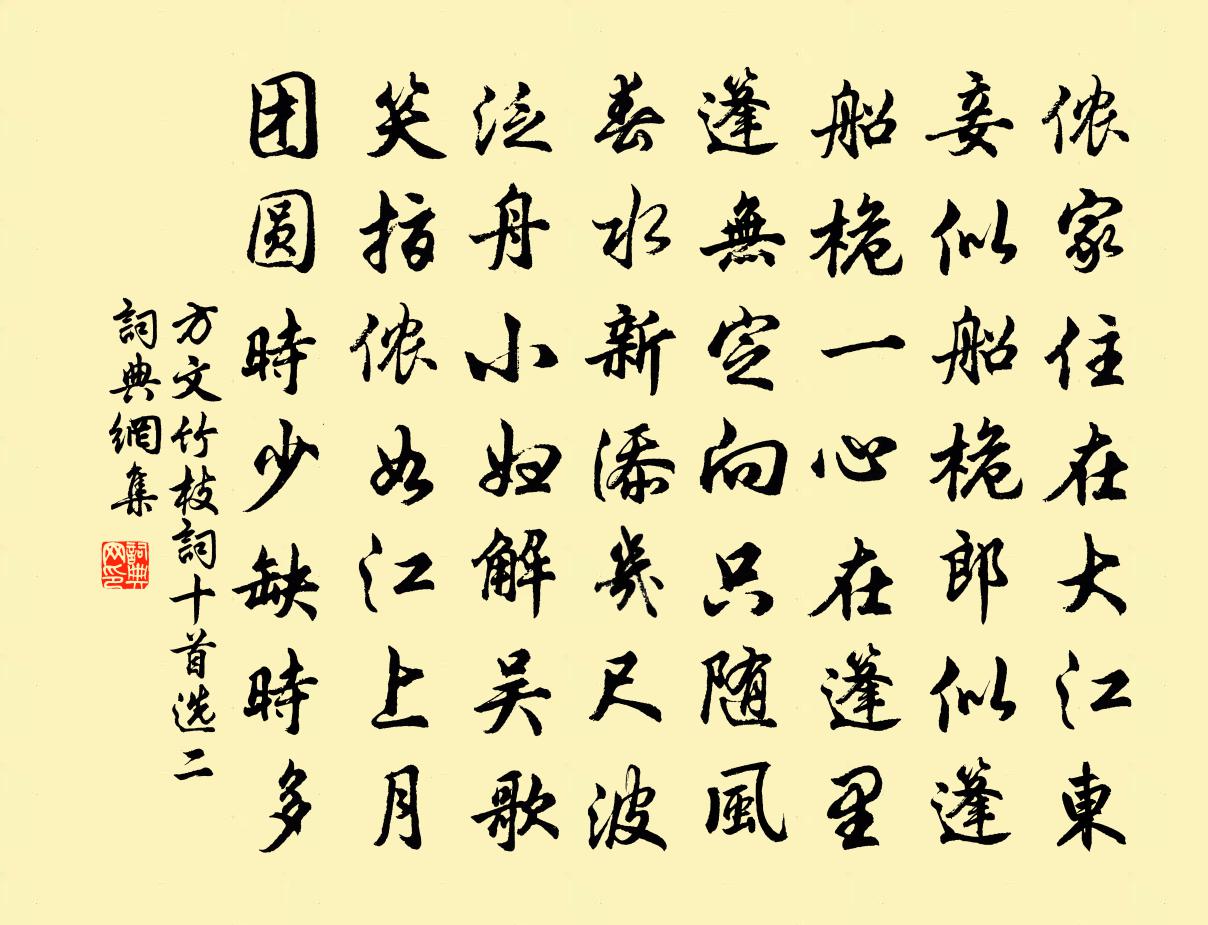 侬家住在大江東
妾似船桅郎似篷
船桅一心在篷里
篷無定向只随風
春水新添幾尺波
泛舟小妇解吴歌
笑指侬如江上月
团圆時少缺時多
方文竹枝詞十首选二
詞典網集
詞典网印